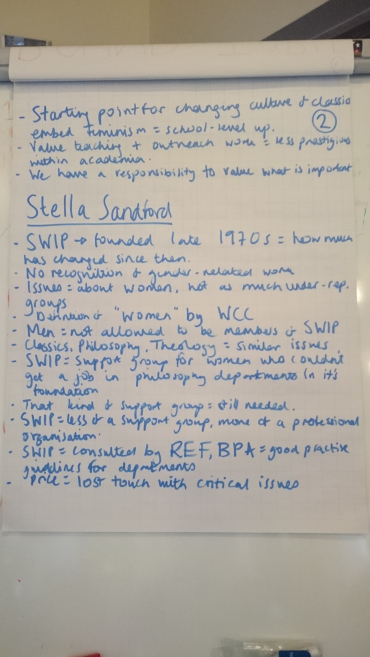 - Starting point for changing culture & classics
embed feminism = school-level up.
②
- Value teaching + outreach work = less prestigious
within academia.
- We have a responsibility to value what is important
Stella Sandford
- SWIP → founded late 1970s = how much
has changed since then.
- No recognition of gender-related work
- Issues = about women, not as much under-rep.
groups.
- Definition of "women" by WCC
- Men = not allowed to be members of SWIP
- Classics, Philosophy, Theology = similar issues
- SWIP = support group for women who couldn't
get a job in philosophy departments in it's
foundation
- That kind of support group = still needed.
- SWIP = less of a support group, more of a professional
organisation.
- SWIP = consulted by REF, BPA = good practise
guidelines for departments
- Price = lost touch with critical issues